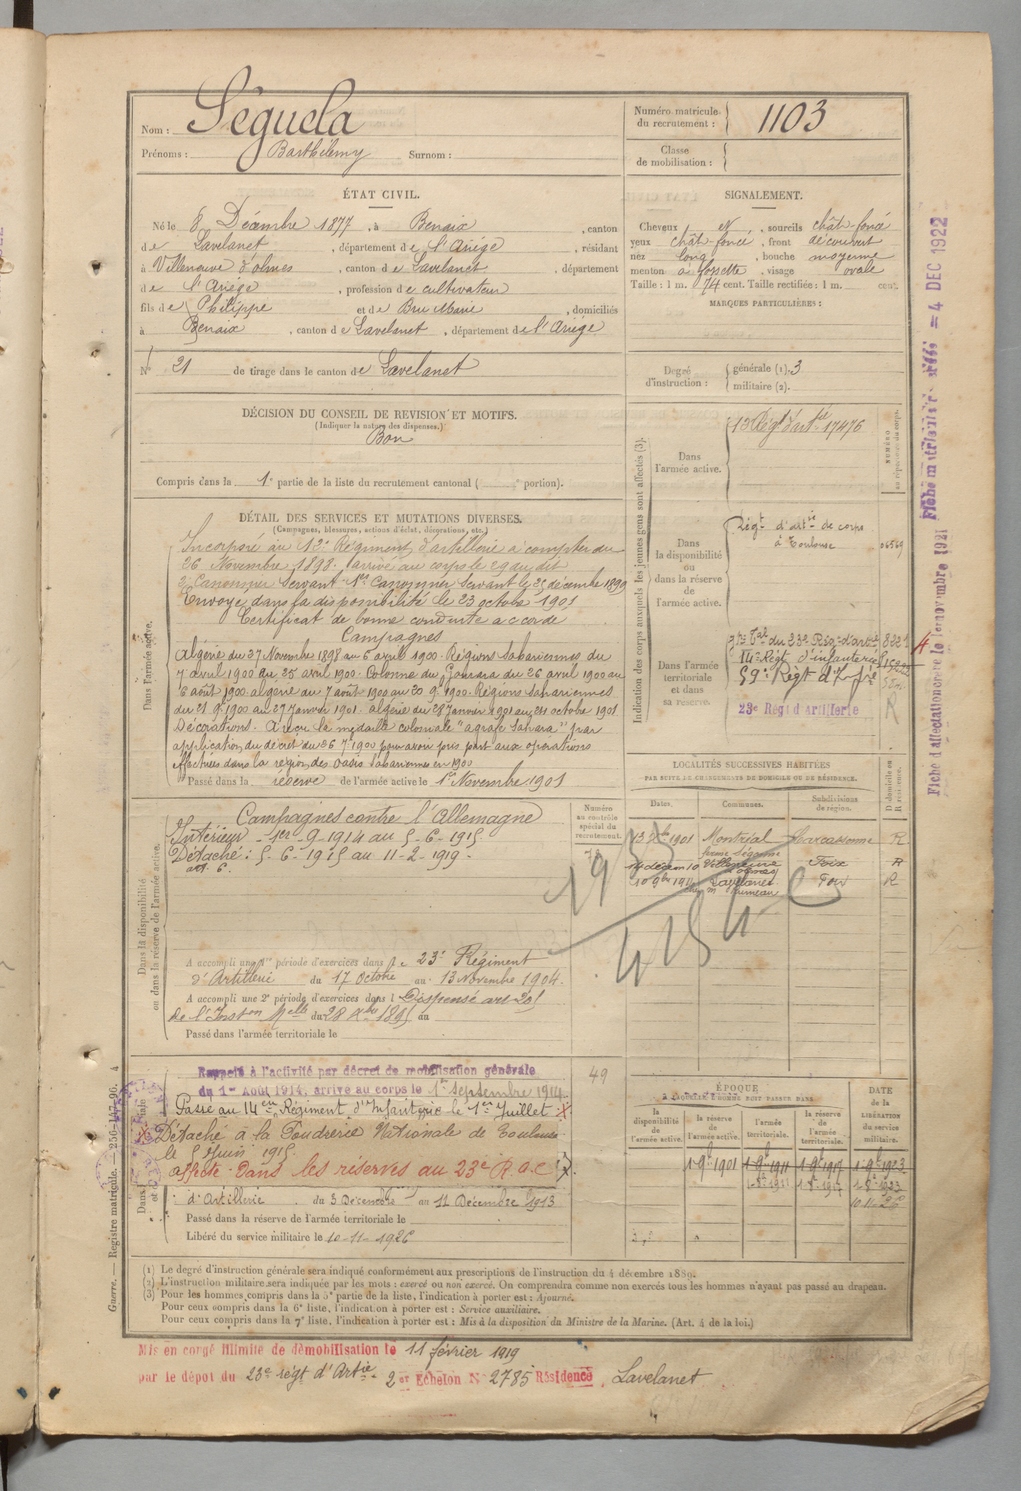 Nom : Séguela
Prénoms : Barthélemy Surnom :
Numéro matricule du recrutement : 1103
Classe de mobilisation :
ÉTAT CIVIL.
Né le 8 Décembre 1877, à Benaix, canton
de Lavelanet, département de l'Ariège, résidant
à Villeneuve d'olmes, canton de Lavelanet, département
de l'Ariège, profession de cultivateur
fils de Philippe et de Bru Marie, domiciliés
à Benaix, canton de Lavelanet, département de l'Ariège
SIGNALEMENT.
Cheveux et, sourcils chât foncé
yeux chât foncé, front découvert
nez long, bouche moyenne
menton à fossette, visage ovale
Taille : 1 m. 74 cent. Taille rectifiée : 1 m. cent.
MARQUES PARTICULIÈRES :
N° 21 de tirage dans le canton de Lavelanet
Degré d'instruction : générale (1). 3
militaire (2).
DÉCISION DU CONSEIL DE REVISION ET MOTIFS.
(Indiquer la nature des dispenses.)
Bon
Compris dans la 1e partie de la liste du recrutement cantonal ( portion).
DÉTAIL DES SERVICES ET MUTATIONS DIVERSES.
(Campagnes, blessures, actions d'éclat, décorations, etc.)
Dans l'armée active.
Incorporé au Régiment d'artillerie à compter du
26 Novembre 1898. arrivé au corps le 29 au dit
2e Canonnier servant 1er Canonnier Servant le 25 décembre 1899
Envoyé dans la disponibilité le 23 octobre 1901
Certificat de bonne conduite accordé
Campagnes
Algérie du 27 Novembre 1898 au 6 avril 1900. Régions Sahariennes du
7 avril 1900 au 25 avril 1900. Colonne du Gourara du 26 avril 1900 au
6 août 1900. algérie du 7 août 1900 au 20 9bre 1900. Régions Sahariennes
du 21 9bre 1900 au 27 Janvier 1901. algérie du 28 Janvier 1901 au 21 octobre 1901
Décorations. A reçu la médaille coloniale "agrafe Sahara" par
application du décret du 26 7bre 1900 pour avoir pris part aux opérations
effectuées dans la région des Oasis Sahariennes en 1900
Passé dans la réserve de l'armée active le 1er Novembre 1901
Indication des corps auxquels les jeunes gens sont affectés (3).
NUMÉRO au répertoire du corps.
Dans l'armée active.
13 Régt d'artie 17476
Dans la disponibilité ou dans la réserve de l'armée active.
Régt d'artie de corps
à Toulouse
Dans l'armée territoriale et dans sa réserve.
gpe Tal du 23e Rég. d'artie 8221
14e Régt d'infanterie
59e Régt d'Infie
23e Régt d'Artillerie
R
Fiche d'affectation créée le 1er novembre 1921
Fiche matriculaire = 4 DEC 1922
LOCALITÉS SUCCESSIVES HABITÉES
PAR SUITE DE CHANGEMENTS DE DOMICILE OU DE RÉSIDENCE.
D domicile ou R résidence.
Dates. Communes. Subdivisions de région.
1901 Montréal Carcassonne R
14 décem 10 Villeneuve d'olmes Foix R
10 9bre 1911 Lavelanet Foix R
Dans la disponibilité ou dans la réserve de l'armée active.
Numéro au contrôle spécial du recrutement.
Campagnes contre l'Allemagne
Intérieur 1er-9-1914 au 5-6-1915
Détaché : 5-6-1915 au 11-2-1919
art. 6.
A accompli une 1re période d'exercices dans le 23e Régiment
d'Artillerie du 17 Octobre au 13 Novembre 1904.
A accompli une 2e période d'exercices dans l Dispensé art 201
de l'Inston Melle du 28 Xbre 1895 au
Passé dans l'armée territoriale le
Rappelé à l'activité par décret de mobilisation générale
du 1er Août 1914, arrivé au corps le 1er Septembre 1914
Passé au 14eme Régiment d'Infanterie le 1er Juillet
Détaché à la Poudrerie Nationale de Toulouse
le 5 Juin 1915
affecté dans les réserves au 23e R.A.C
d'Artillerie du 3 Décembre au 11 Décembre 1913
Passé dans la réserve de l'armée territoriale le
Libéré du service militaire le 10-11-1926
49
ÉPOQUE
À LAQUELLE L'HOMME DOIT PASSER DANS
la disponibilité de l'armée active.
la réserve de l'armée active.
l'armée territoriale.
la réserve de l'armée territoriale.
DATE de la LIBÉRATION du service militaire.
1 9bre 1901 1 9bre 1911 1 9bre 1917 1 9bre 1923
10-11-26
Guerre. — Registre matricule. — 256-147-96. 4
(1) Le degré d'instruction générale sera indiqué conformément aux prescriptions de l'instruction du 4 décembre 1889.
(2) L'instruction militaire sera indiquée par les mots : exercé ou non exercé. On comprendra comme non exercés tous les hommes n'ayant pas passé au drapeau.
(3) Pour les hommes compris dans la 5e partie de la liste, l'indication à porter est : Ajourné.
Pour ceux compris dans la 6e liste, l'indication à porter est : Service auxiliaire.
Pour ceux compris dans la 7e liste, l'indication à porter est : Mis à la disposition du Ministre de la Marine. (Art. 4 de la loi.)
Mis en congé illimité de démobilisation le 11 février 1919
par le dépôt du 23e régt d'Artie. 2me Echelon N° 2785 Résidence Lavelanet